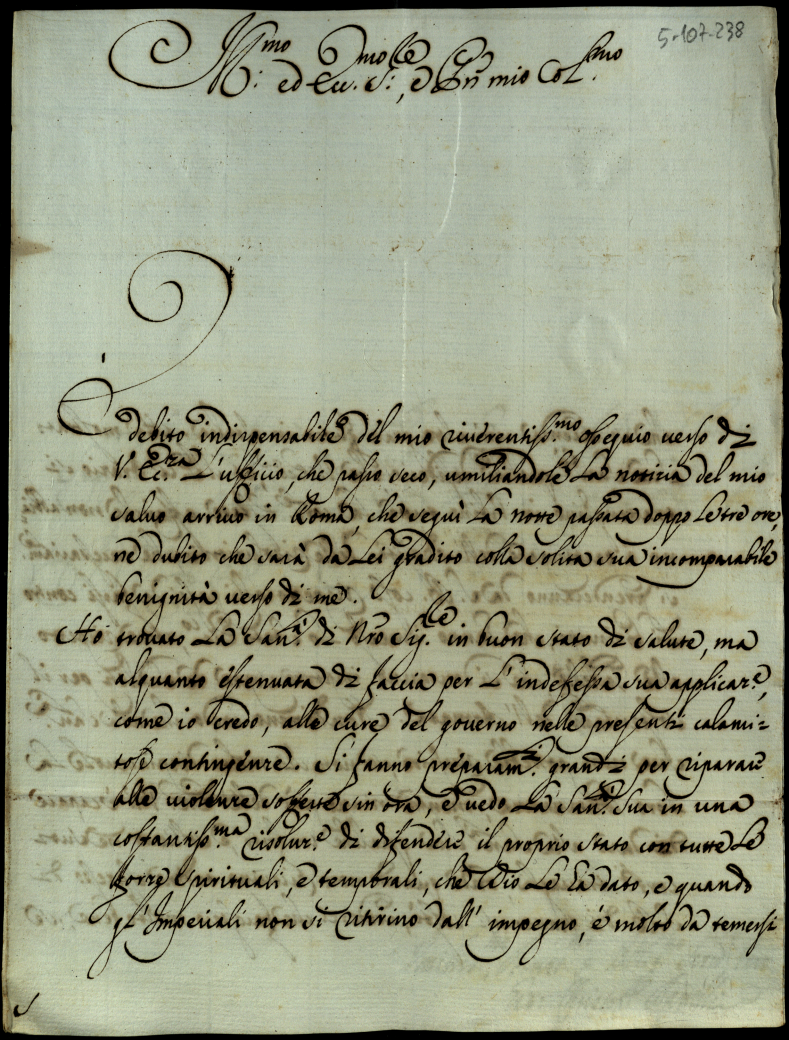 5-107-238
Ill.mo ed Ecc. S:, e Pñ mio Col.mo
È debito indispensabile del mio riverentiss.mo ossequio verso di
V. Ec.za L'ufficio, che passo seco, umiliandole La noticia del mio
salvo arrivo in Roma, che seguì La notte passata doppo Le tre ore,
ne dubito che sarà da Lei gradito colla solita sua incomparabile
benignità verso di me.
Hò trovato La San.à di Nrõ Sig.re in buon stato di salute, ma
alquanto estenuata di faccia per L'indefessa sua applicaz.e,
come io credo, alle cure del governo nelle presenti calami=
tose contingenze. Si fanno preparam.i grandi per riparare
alle violenze sofferte sin ora, e vedo La San.à Sua in una
costantiss.ma risoluz.e di difendere il proprio stato con tutte Le
forze spirituali, e temporali, che Idio Le hà dato, e quando
gl'Imperiali non si ritirino dall'impegno, è molto da temersi